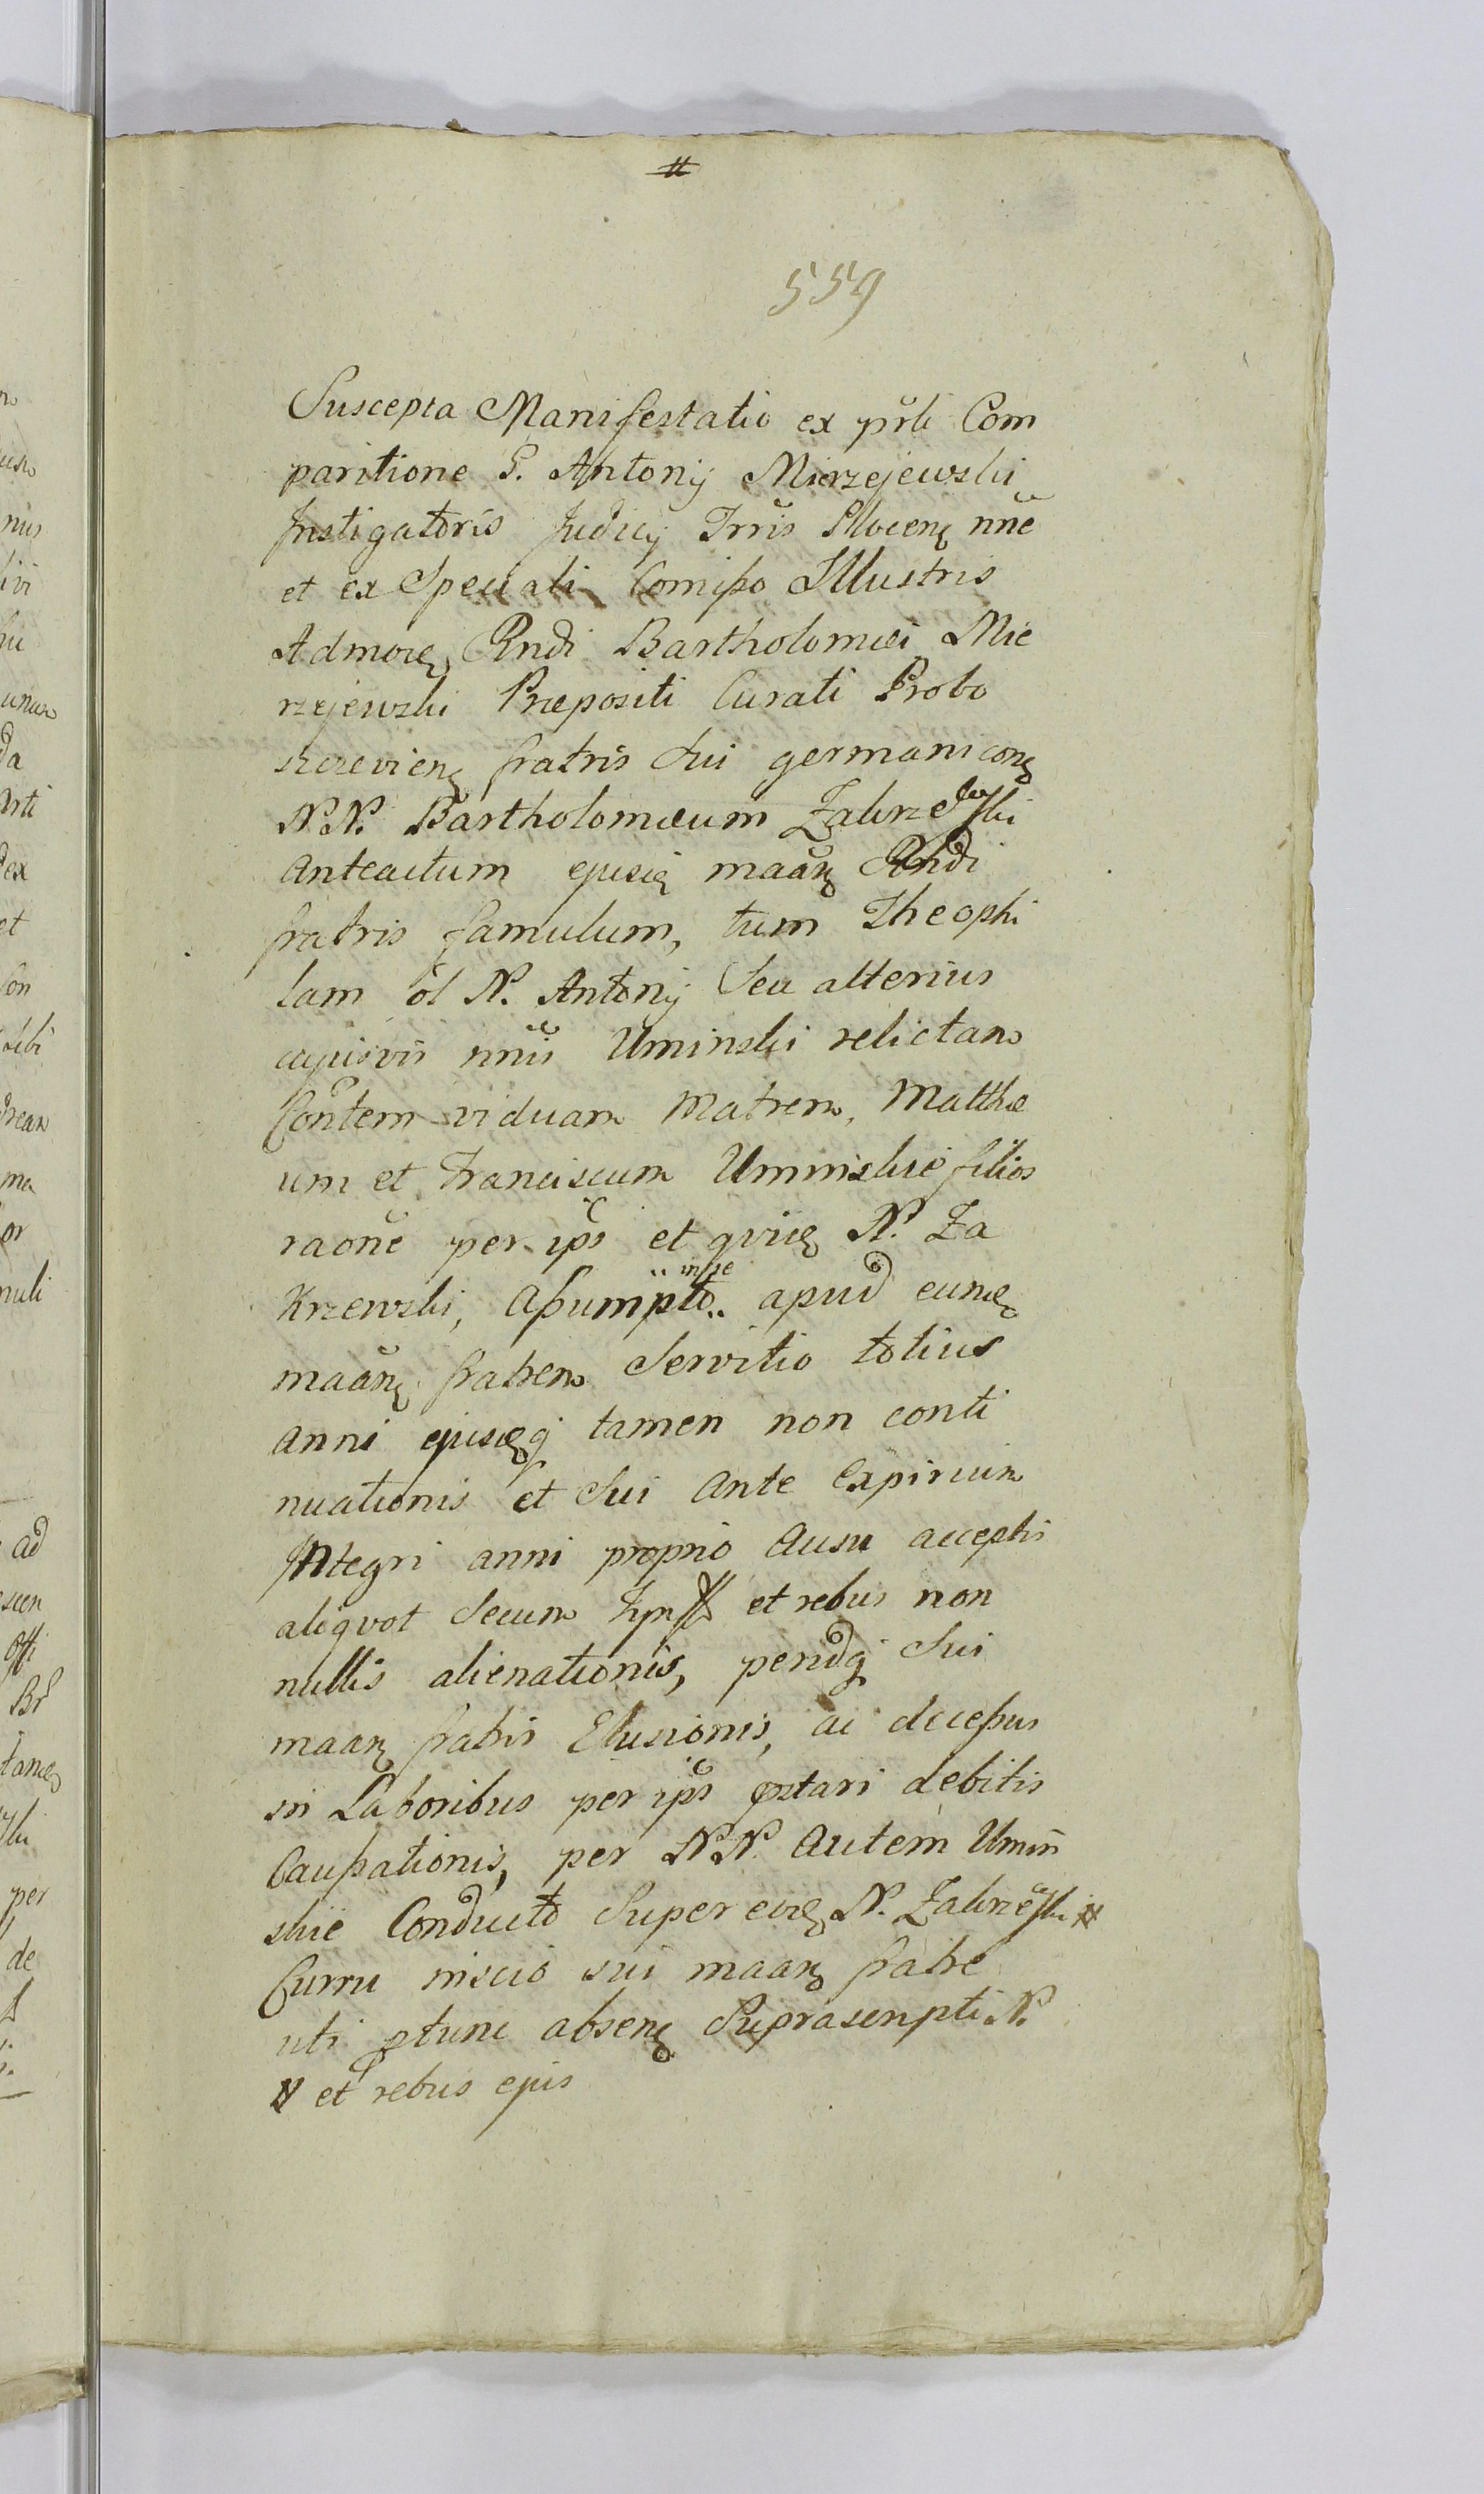 #
559
Suscepta Manifestatio ex prsti Com
paritione G. Antonij Mierzejewski
Instigatoris Judicij Trris Plocens nne
et ex Speciali Comisso Illustris
Admodm Rndi Bartholomæi Mie
rzejewski Præpositi Curati Probo
szczeviens fratris sui germani con
N.N. Bartholomæum Zakrzewski
anteactum ejusd maans Rndi
fratris famulum, tum Theophi
lam ol N. Antonij Seu alterius
cujusvis nnis Uminski relictam
Contem viduam Matrem, Matthæ
um et Franciscum Uminskie filios
raone per ips et quid N. Za
krzewski, Assumpto in se apud eund
maans fratrem Servitio totius
anni ejusdq tamen non conti
nuationis et Sui ante Expirium
Integri anni proprio ausu acceptis
aliqvot Secum et rebus non
nullis alienationis, perndq Sui
maans fratris Elusionis, ac decessus
in Laboribus per ips pstari debitis
Caussationis, per N.N. autem Umin
skie Conducto Super eund N. Zakrzewski #
Curru inscio sui maans fratre
uti ptunc absens Suprascripti N.
# et rebus ejus